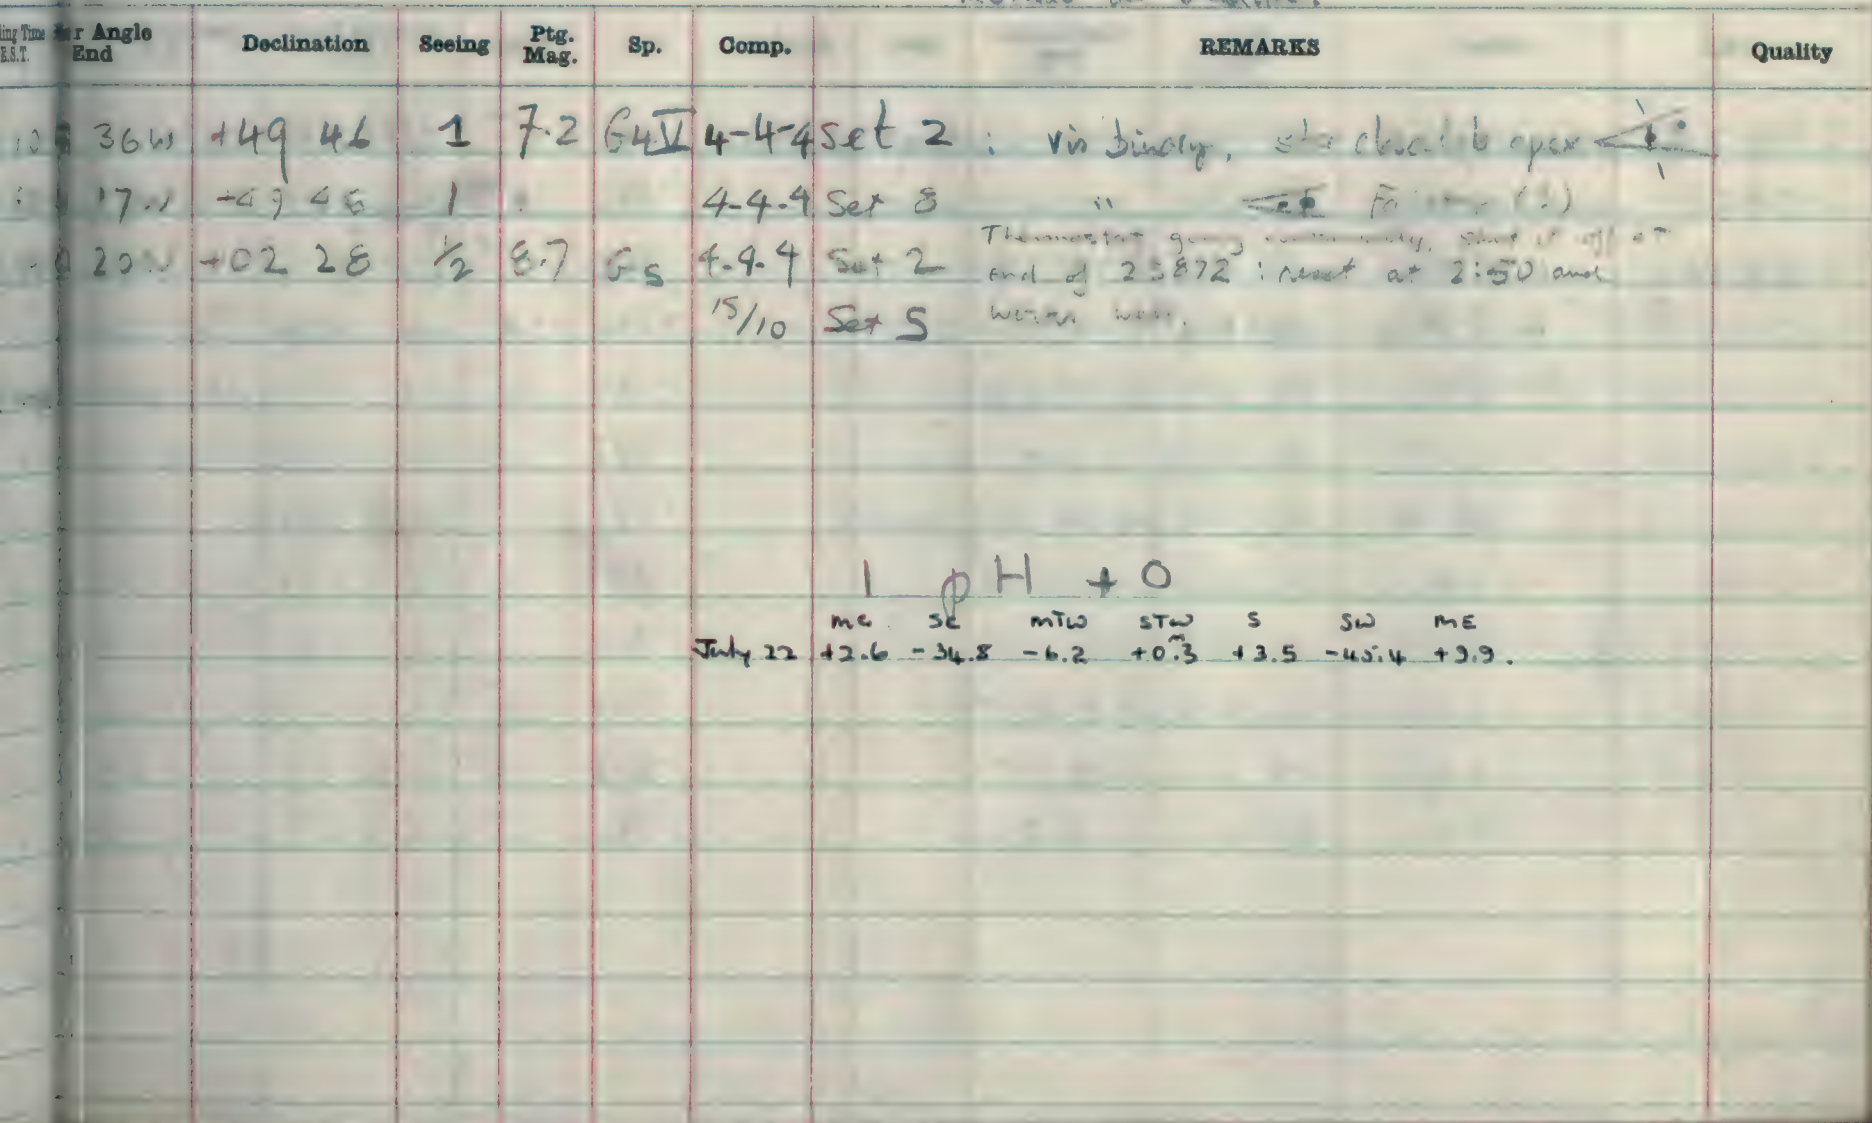 Hour Angle End Declination Seeing Ptg. Mag. Sp. Comp. REMARKS Quality
36W +49 46 1 7.2 G4V 4-4-4 Set 2 : vis binary, closest to apex
17 +49 46 1 4-4-4 Set 8 "
20 +02 28 1/2 8.7 G5 4-4-4 Set 2 Thermostat going shut it off at
end of 23872 : reset at 2:50 and
15/10 Set 5 works well.
1 pH + O
SE MTW STW S SW ME
July 22 +2.6 -34.8 -6.2 +0.3 +3.5 -45.4 +3.9.